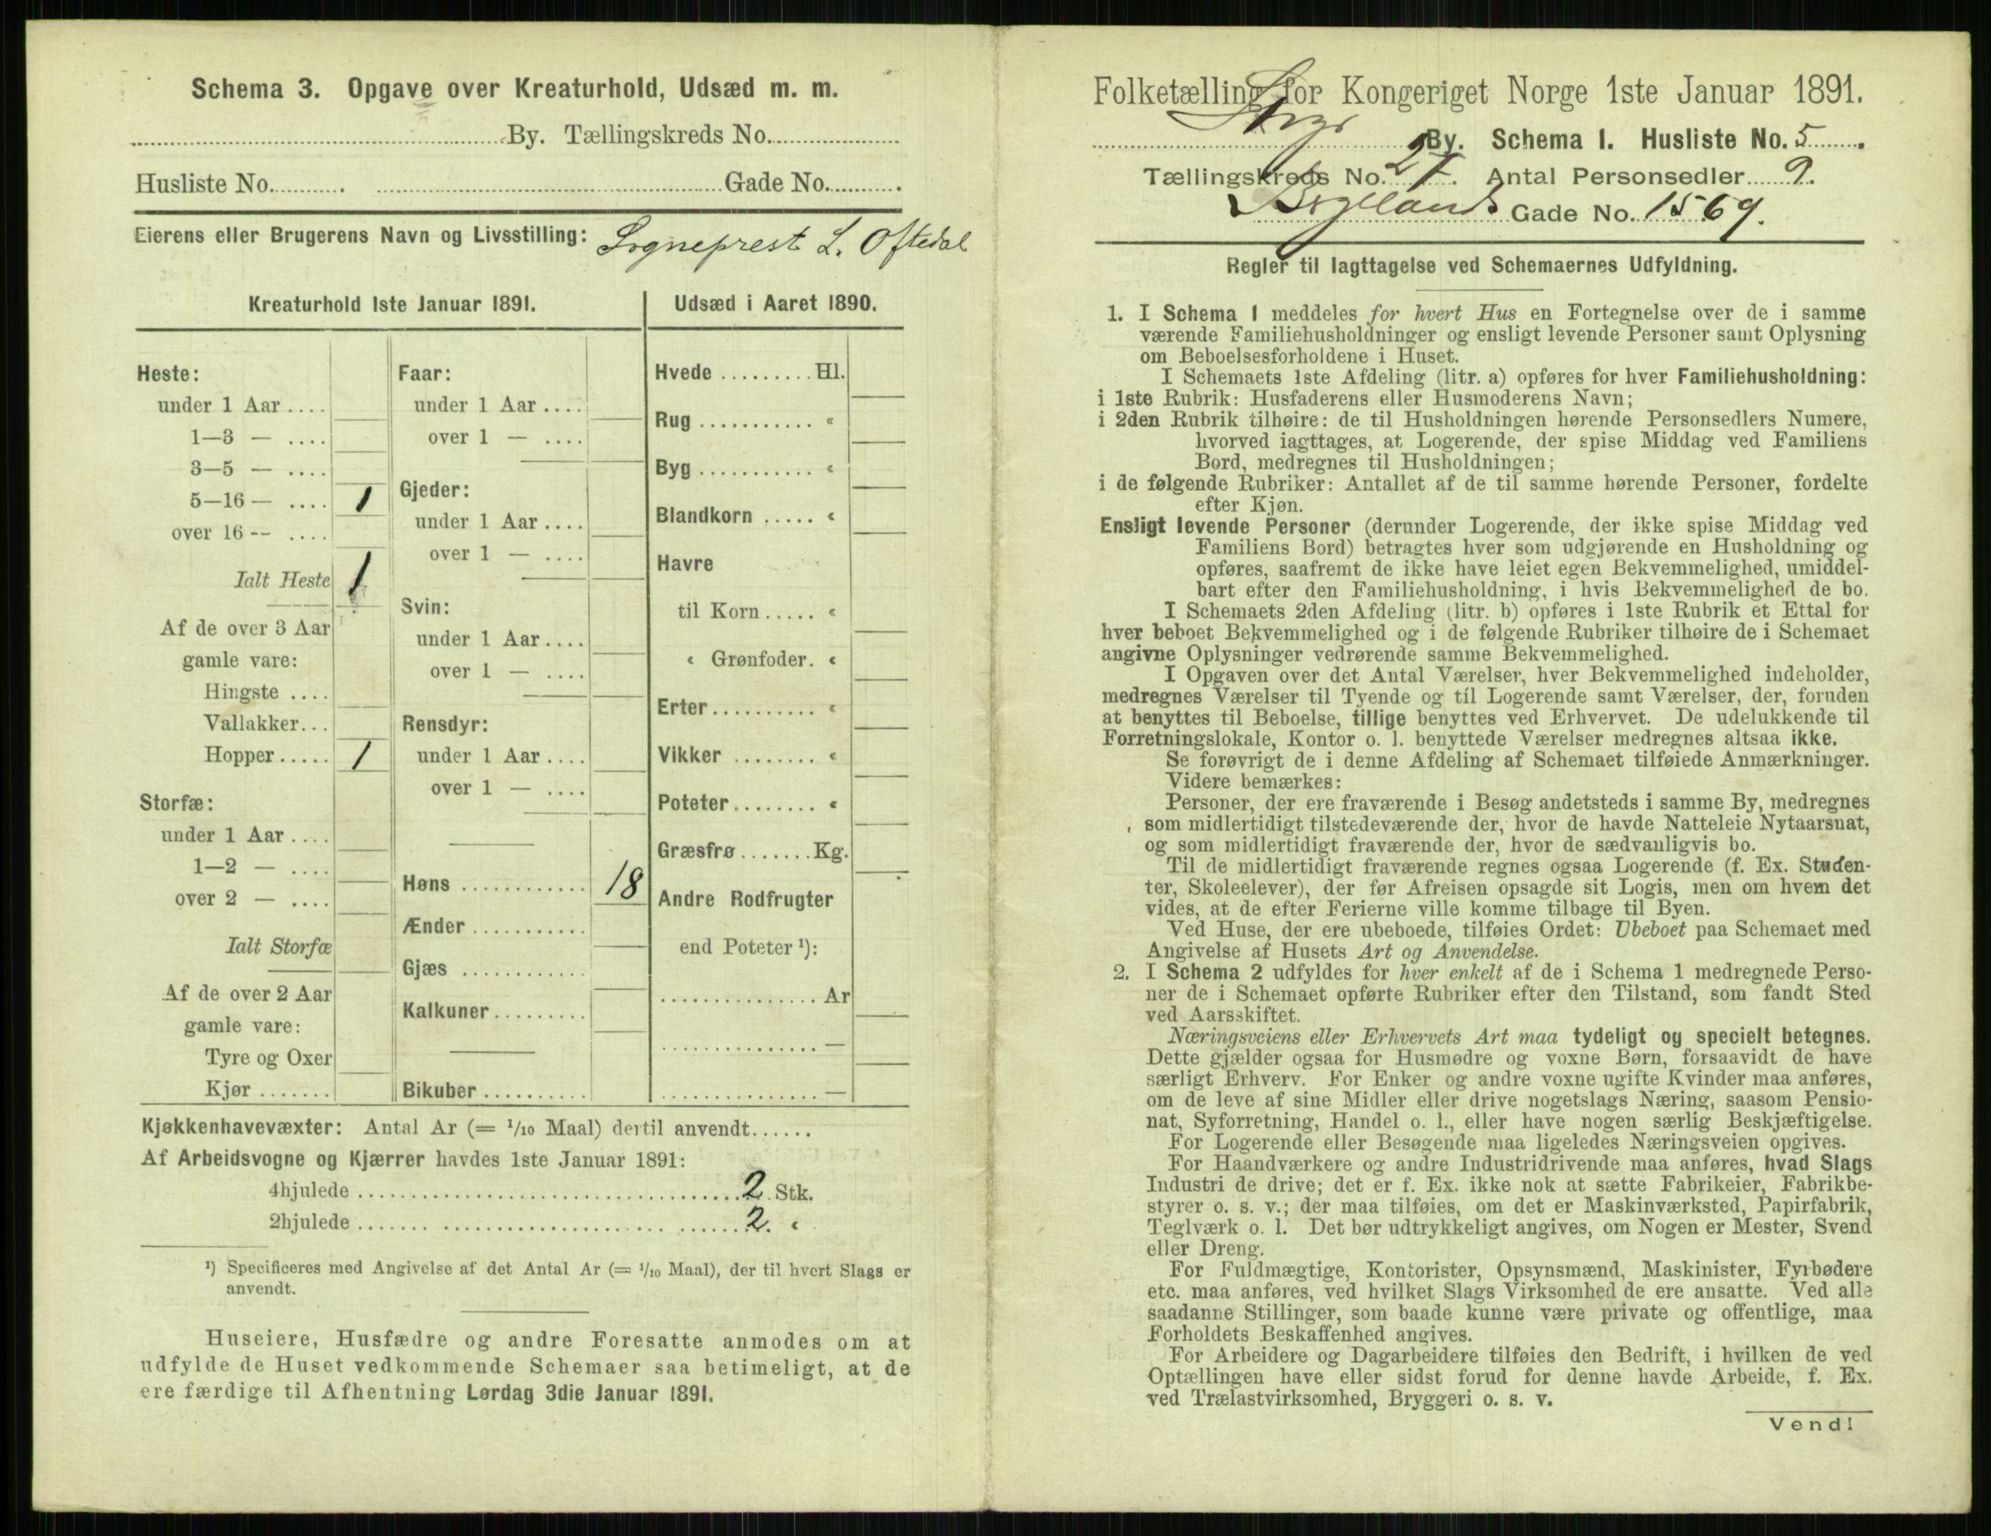 Schema 3. Opgave over Kreaturhold, Udsæd m. m.
By. Tællingskreds No.
Husliste No. Gade No.
Eierens eller Brugerens Navn og Livsstilling: Sogneprest L. Oftedal
Kreaturhold 1ste Januar 1891.
Heste:
under 1 Aar
1—3 —
3—5 —
5—16 — 1
over 16 —
Ialt Heste 1
Af de over 3 Aar
gamle vare:
Hingste
Vallakker
Hopper 1
Storfæ:
under 1 Aar
1—2 —
over 2 —
Ialt Storfæ
Af de over 2 Aar
gamle vare:
Tyre og Oxer
Kjør
Faar:
under 1 Aar
over 1 —
Gjeder:
under 1 Aar
over 1 —
Svin:
under 1 Aar
over 1 —
Rensdyr:
under 1 Aar
over 1 —
Høns 18
Ænder
Gjæs
Kalkuner
Bikuber
Udsæd i Aaret 1890.
Hvede Hl.
Rug «
Byg «
Blandkorn «
Havre
til Korn «
« Grønfoder. «
Erter «
Vikker «
Poteter «
Græsfrø Kg.
Andre Rodfrugter
end Poteter ¹):
Ar
—
—
Kjøkkenhavevæxter: Antal Ar (= 1/10 Maal) dertil anvendt
Af Arbeidsvogne og Kjærrer havdes 1ste Januar 1891:
4hjulede 2 Stk.
2hjulede 2. «
¹) Specificeres med Angivelse af det Antal Ar (= 1/10 Maal), der til hvert Slags er
anvendt.
Huseiere, Husfædre og andre Foresatte anmodes om at
udfylde de Huset vedkommende Schemaer saa betimeligt, at de
ere færdige til Afhentning Lørdag 3die Januar 1891.
Folketælling for Kongeriget Norge 1ste Januar 1891.
By. Schema 1. Husliste No. 5
Tællingskreds No. 21. Antal Personsedler 9.
Gade No. 1569.
Regler til Iagttagelse ved Schemaernes Udfyldning.
1. I Schema 1 meddeles for hvert Hus en Fortegnelse over de i samme
værende Familiehusholdninger og ensligt levende Personer samt Oplysning
om Beboelsesforholdene i Huset.
I Schemaets 1ste Afdeling (litr. a) opføres for hver Familiehusholdning:
i 1ste Rubrik: Husfaderens eller Husmoderens Navn;
i 2den Rubrik tilhøire: de til Husholdningen hørende Personsedlers Numere,
hvorved iagttages, at Logerende, der spise Middag ved Familiens
Bord, medregnes til Husholdningen;
i de følgende Rubriker: Antallet af de til samme hørende Personer, fordelte
efter Kjøn.
Ensligt levende Personer (derunder Logerende, der ikke spise Middag ved
Familiens Bord) betragtes hver som udgjørende en Husholdning og
opføres, saafremt de ikke have leiet egen Bekvemmelighed, umiddel-
bart efter den Familiehusholdning, i hvis Bekvemmelighed de bo.
I Schemaets 2den Afdeling (litr. b) opføres i 1ste Rubrik et Ettal for
hver beboet Bekvemmelighed og i de følgende Rubriker tilhøire de i Schemaet
angivne Oplysninger vedrørende samme Bekvemmelighed.
I Opgaven over det Antal Værelser, hver Bekvemmelighed indeholder,
medregnes Værelser til Tyende og til Logerende samt Værelser, der, foruden
at benyttes til Beboelse, tillige benyttes ved Erhvervet. De udelukkende til
Forretningslokale, Kontor o. l. benyttede Værelser medregnes altsaa ikke.
Se forøvrigt de i denne Afdeling af Schemaet tilføiede Anmærkninger.
Videre bemærkes:
Personer, der ere fraværende i Besøg andetsteds i samme By, medregnes
som midlertidigt tilstedeværende der, hvor de havde Natteleie Nytaarsnat,
og som midlertidigt fraværende der, hvor de sædvanligvis bo.
Til de midlertidigt fraværende regnes ogsaa Logerende (f. Ex. Studen-
ter, Skoleelever), der før Afreisen opsagde sit Logis, men om hvem det
vides, at de efter Ferierne ville komme tilbage til Byen.
Ved Huse, der ere ubeboede, tilføies Ordet: Ubeboet paa Schemaet med
Angivelse af Husets Art og Anvendelse.
2. I Schema 2 udfyldes for hver enkelt af de i Schema 1 medregnede Perso-
ner de i Schemaet opførte Rubriker efter den Tilstand, som fandt Sted
ved Aarsskiftet.
Næringsveiens eller Erhvervets Art maa tydeligt og specielt betegnes.
Dette gjælder ogsaa for Husmødre og voxne Børn, forsaavidt de have
særligt Erhverv. For Enker og andre voxne ugifte Kvinder maa anføres,
om de leve af sine Midler eller drive nogetslags Næring, saasom Pensio-
nat, Syforretning, Handel o. l., eller have nogen særlig Beskjæftigelse.
For Logerende eller Besøgende maa ligeledes Næringsveien opgives.
For Haandværkere og andre Industridrivende maa anføres, hvad Slags
Industri de drive; det er f. Ex. ikke nok at sætte Fabrikeier, Fabrikbe-
styrer o. s. v.; der maa tilføies, om det er Maskinværksted, Papirfabrik,
Teglværk o. l. Det bør udtrykkeligt angives, om Nogen er Mester, Svend
eller Dreng.
For Fuldmægtige, Kontorister, Opsynsmænd, Maskinister, Fyrbødere
etc. maa anføres, ved hvilket Slags Virksomhed de ere ansatte. Ved alle
saadanne Stillinger, som baade kunne være private og offentlige, maa
Forholdets Beskaffenhed angives.
For Arbeidere og Dagarbeidere tilføies den Bedrift, i hvilken de ved
Optællingen have eller sidst forud for denne havde Arbeide, f. Ex.
ved Trælastvirksomhed, Bryggeri o. s. v.
Vend!